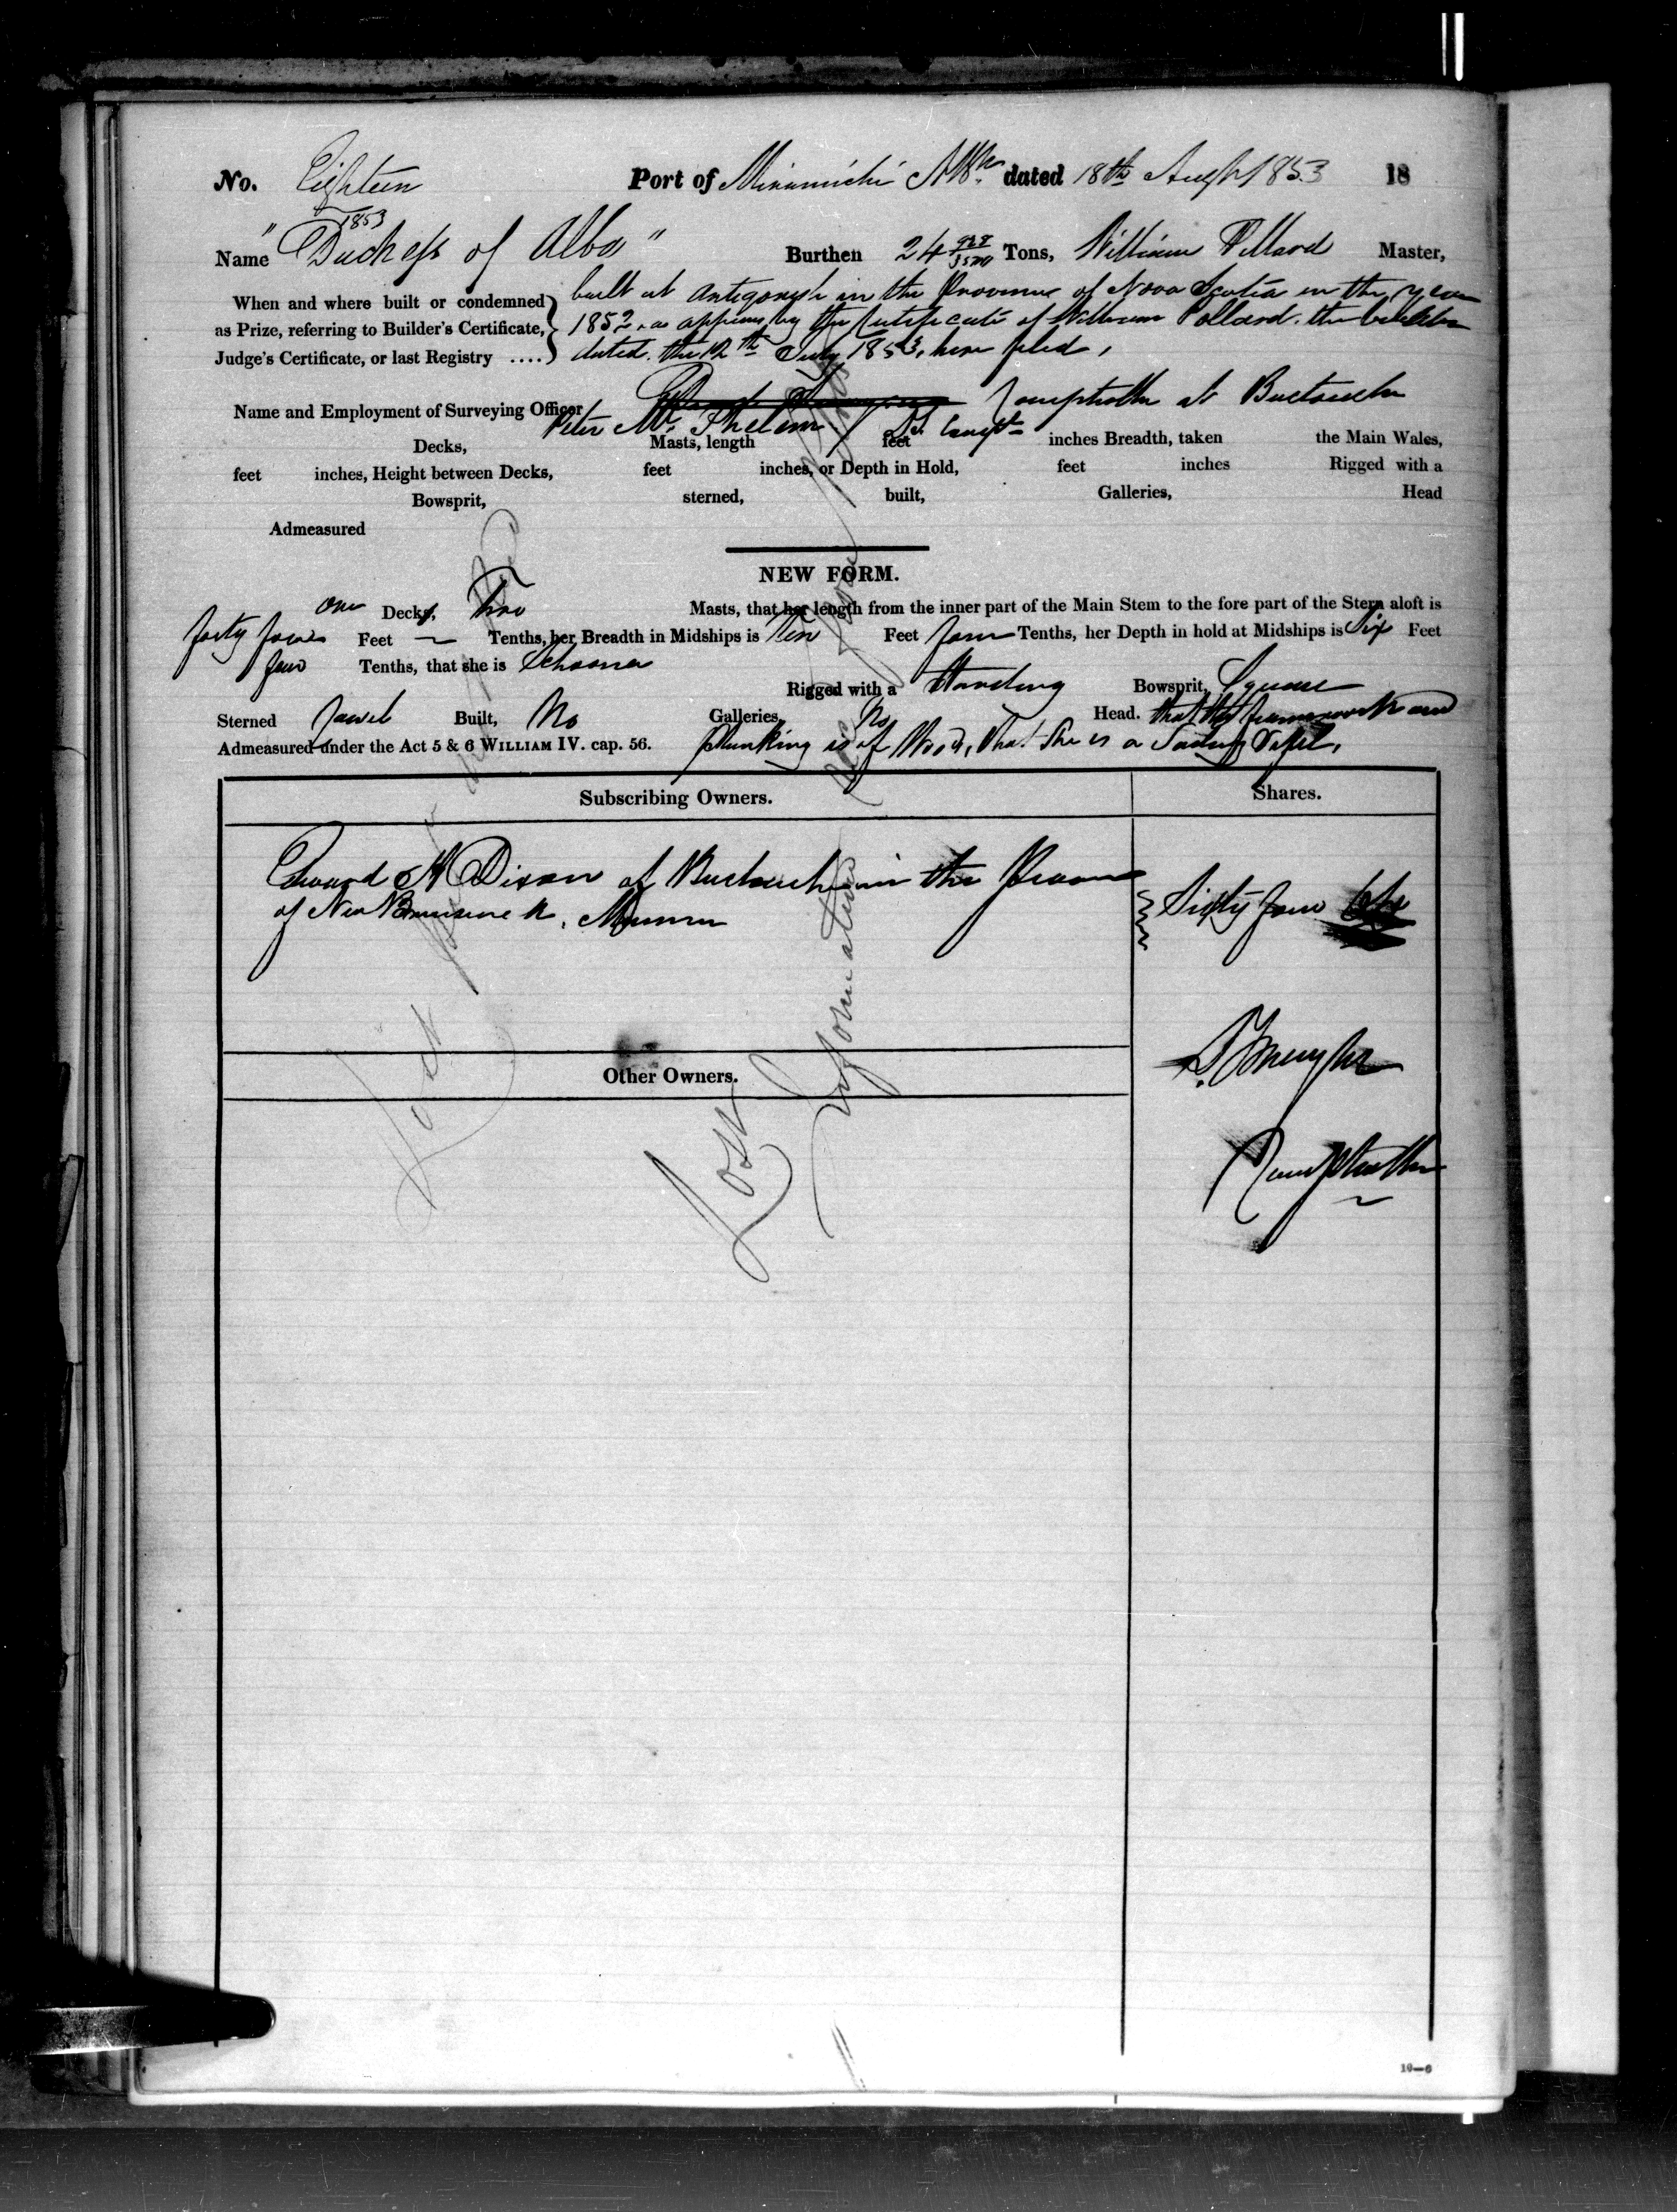 No. Eighteen Port of Miramichi NBk dated 18th Augst 1853 18
1853
Name "Duchess of Alba" Burthen 24 Tons, William Pollard Master,
When and where built or condemned built at Antigonish in the Province of Nova Scotia in the year
as Prize, referring to Builder's Certificate, 1852, as appears by the Certificate of William Pollard the builder
Judge's Certificate, or last Registry .... dated the 12th July 1853, here filed,
Name and Employment of Surveying Officer at Buctouche
Peter Mc Phelim
Decks, Masts, length feet inches Breadth, taken the Main Wales,
feet inches, Height between Decks, feet inches, or Depth in Hold, feet inches Rigged with a
Bowsprit, sterned, built, Galleries, Head
Admeasured
NEW FORM.
One Decks, Two Masts, that her length from the inner part of the Main Stem to the fore part of the Stern aloft is
forty four Feet — Tenths, her Breadth in Midships is Ten Feet four Tenths, her Depth in hold at Midships is Six Feet
four Tenths, that she is Schooner
Rigged with a Standing Bowsprit, Square
Sterned Carvel Built, No Galleries, No Head. that the framework and
Admeasured under the Act 5 & 6 WILLIAM IV. cap. 56. planking is of Wood, that she is a Sailing Vessel,
Subscribing Owners. Shares.
Edward H Dixon of Buctouche in the Province
of New Brunswick, Sixty four
Other Owners.
Lost
Lost
Information
19—6